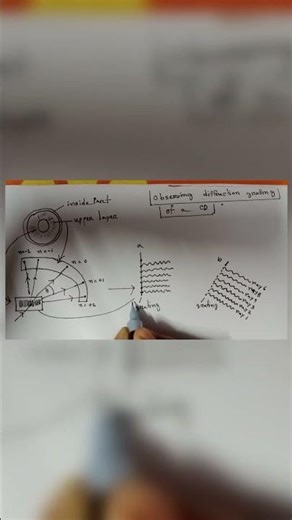 Observing diffraction grating
of a CD
inside Part
upper layer
n=-2
n=-1
n=0
n=+1
n=+2
θ
a
grating
b
grating